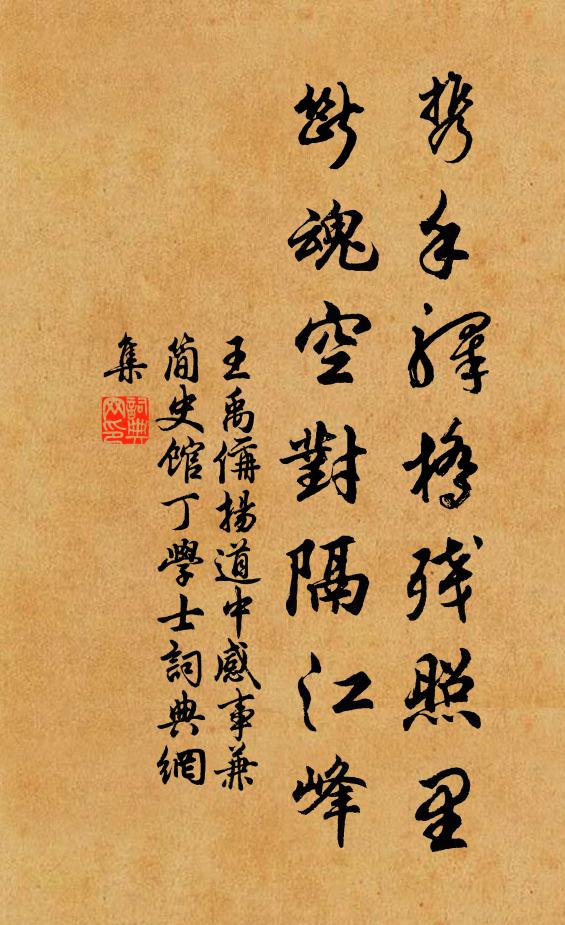 携手驛橋残照里
斷魂空對隔江峰
王禹偁揚道中感事兼
简史館丁學士詞典網
集
詞典網印